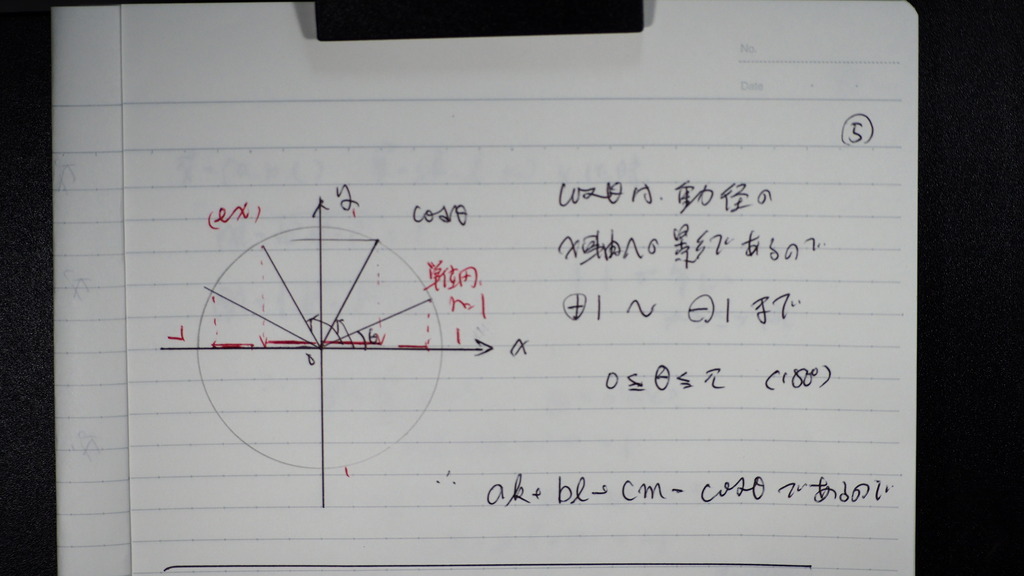 No.
Date
⑤
(ex)
y
cosθ
cosθは、動径の
x軸への影であるので
単位円
r=1
⊕1 〜 ⊖1 まで
θ
1
0
x
0≦θ≦π (180°)
∴ ak+bl+cm=cosθ であるので